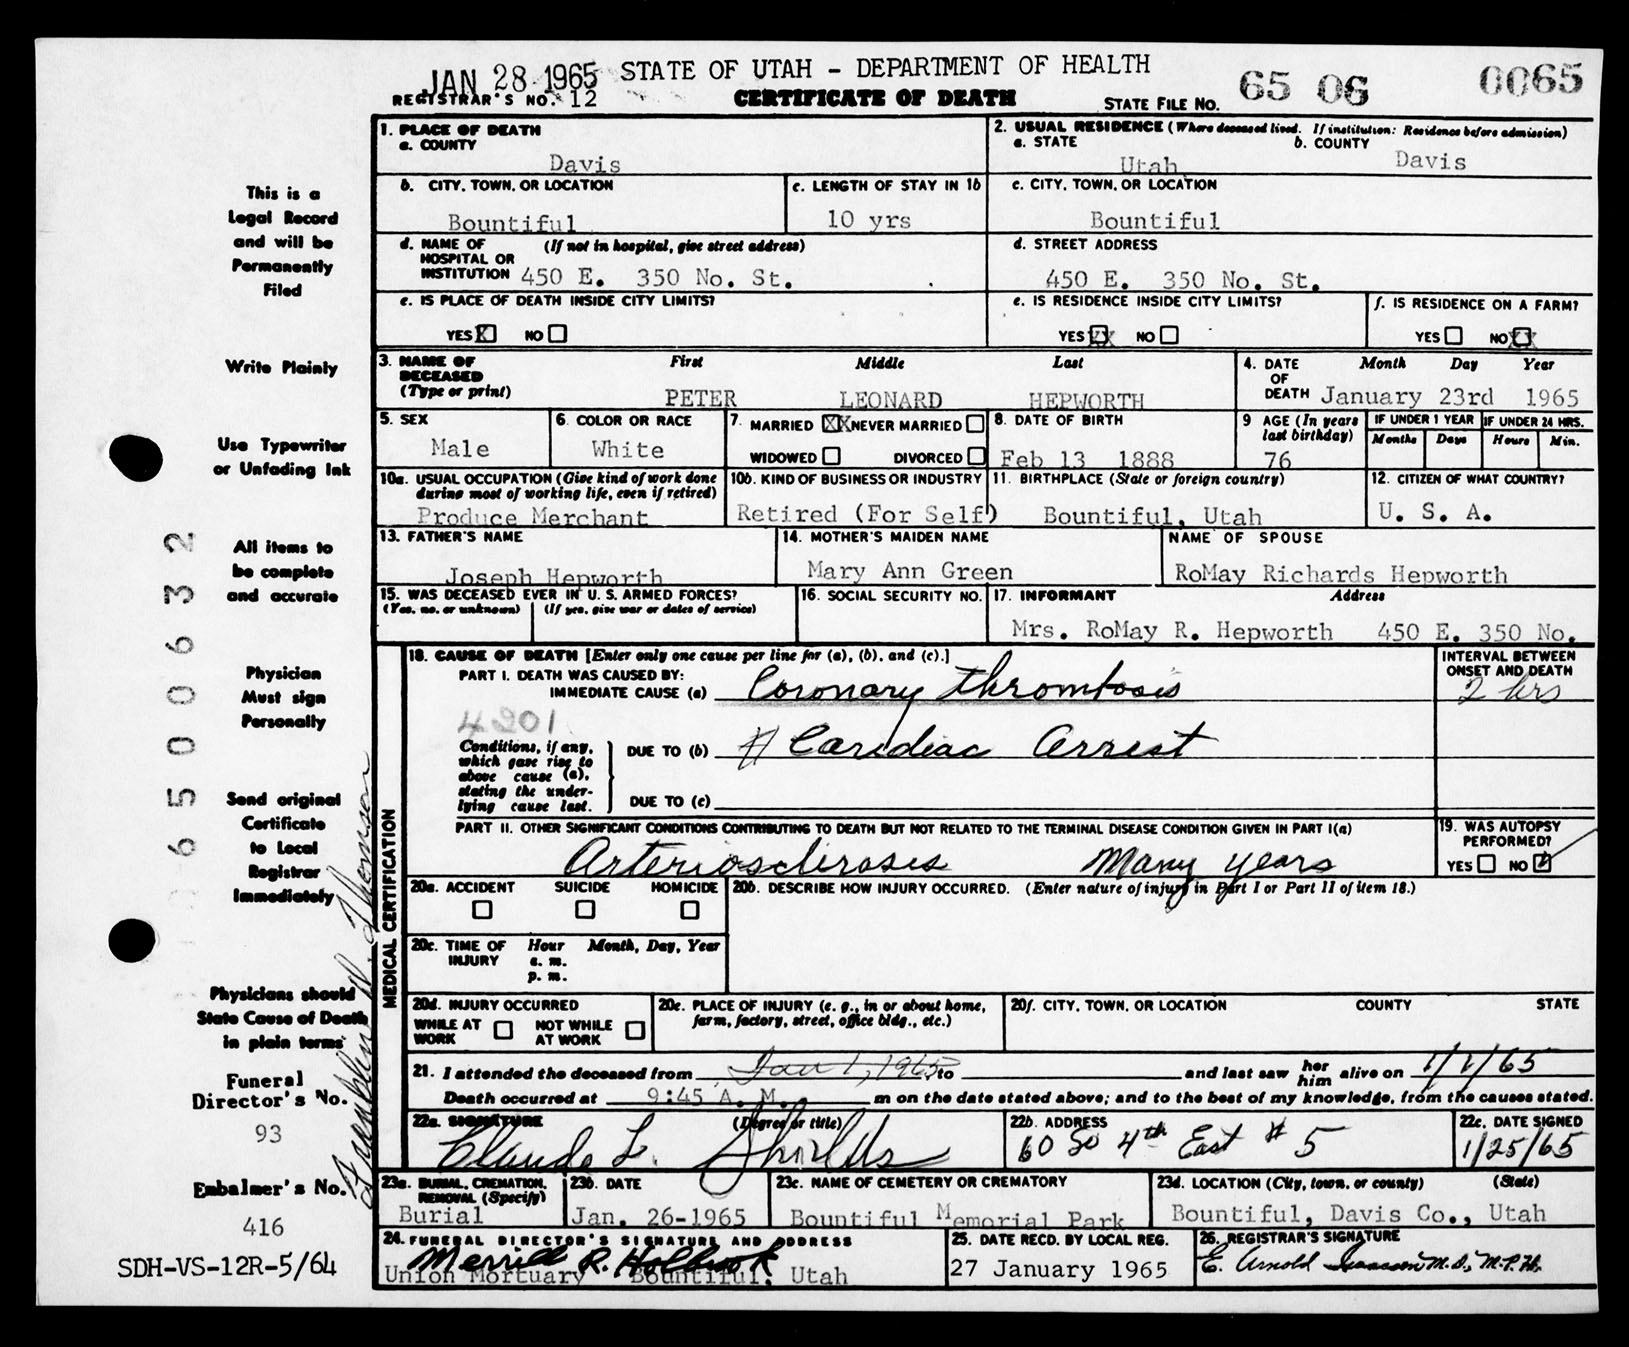 JAN 28 1965 STATE OF UTAH - DEPARTMENT OF HEALTH 65 06 0065
REGISTRAR'S NO. 12 CERTIFICATE OF DEATH STATE FILE NO.
This is a
Legal Record
and will be
Permanently
Filed
Write Plainly
Use Typewriter
or Unfading Ink
All items to
be complete
and accurate
Physician
Must sign
Personally
Send original
Certificate
to Local
Registrar
Immediately
Physicians should
State Cause of Death
in plain terms
Funeral
Director's No.
93
Embalmer's No.
416
SDH-VS-12R-5/64
6500632
1. PLACE OF DEATH
a. COUNTY
Davis
2. USUAL RESIDENCE (Where deceased lived. If institution: Residence before admission)
a. STATE b. COUNTY
Utah Davis
b. CITY, TOWN, OR LOCATION
Bountiful
c. LENGTH OF STAY IN 1b
10 yrs
c. CITY, TOWN, OR LOCATION
Bountiful
d. NAME OF (If not in hospital, give street address)
HOSPITAL OR
INSTITUTION 450 E. 350 No. St.
d. STREET ADDRESS
450 E. 350 No. St.
e. IS PLACE OF DEATH INSIDE CITY LIMITS?
YES X NO
e. IS RESIDENCE INSIDE CITY LIMITS?
YES XX NO
f. IS RESIDENCE ON A FARM?
YES NO XX
3. NAME OF DECEASED (Type or print) First Middle Last
PETER LEONARD HEPWORTH
4. DATE OF DEATH Month Day Year
January 23rd 1965
5. SEX
Male
6. COLOR OR RACE
White
7. MARRIED XX NEVER MARRIED
WIDOWED DIVORCED
8. DATE OF BIRTH
Feb 13 1888
9 AGE (In years last birthday)
76
IF UNDER 1 YEAR IF UNDER 24 HRS.
Months Days Hours Min.
10a. USUAL OCCUPATION (Give kind of work done
during most of working life, even if retired)
Produce Merchant
10b. KIND OF BUSINESS OR INDUSTRY
Retired (For Self)
11. BIRTHPLACE (State or foreign country)
Bountiful, Utah
12. CITIZEN OF WHAT COUNTRY?
U. S. A.
13. FATHER'S NAME
Joseph Hepworth
14. MOTHER'S MAIDEN NAME
Mary Ann Green
NAME OF SPOUSE
RoMay Richards Hepworth
15. WAS DECEASED EVER IN U. S. ARMED FORCES?
(Yes, no, or unknown) (If yes, give war or dates of service)
16. SOCIAL SECURITY NO.
17. INFORMANT Address
Mrs. RoMay R. Hepworth 450 E. 350 No.
MEDICAL CERTIFICATION
18. CAUSE OF DEATH [Enter only one cause per line for (a), (b), and (c).]
INTERVAL BETWEEN
ONSET AND DEATH
PART I. DEATH WAS CAUSED BY:
IMMEDIATE CAUSE (a) Coronary Thrombosis 2 hrs
4201
Conditions, if any,
which gave rise to
above cause (a),
stating the under-
lying cause last.
DUE TO (b) Cardiac Arrest
DUE TO (c)
PART II. OTHER SIGNIFICANT CONDITIONS CONTRIBUTING TO DEATH BUT NOT RELATED TO THE TERMINAL DISEASE CONDITION GIVEN IN PART I(a)
Arteriosclirosis Many years
19. WAS AUTOPSY
PERFORMED?
YES NO
20a. ACCIDENT SUICIDE HOMICIDE
20b. DESCRIBE HOW INJURY OCCURRED. (Enter nature of injury in Part I or Part II of item 18.)
20c. TIME OF INJURY Hour Month, Day, Year
a. m.
p. m.
20d. INJURY OCCURRED
WHILE AT WORK NOT WHILE AT WORK
20e. PLACE OF INJURY (e. g., in or about home,
farm, factory, street, office bldg., etc.)
20f. CITY, TOWN, OR LOCATION COUNTY STATE
21. I attended the deceased from Jan 1, 1965 to and last saw her him alive on 1/1/65
Death occurred at 9:45 A. M. m on the date stated above; and to the best of my knowledge, from the causes stated.
22a. SIGNATURE (Degree or title)
Claude L. Shields
22b. ADDRESS
60 So 4th East # 5
22c. DATE SIGNED
1/25/65
23a. BURIAL, CREMATION,
REMOVAL (Specify)
Burial
23b. DATE
Jan. 26-1965
23c. NAME OF CEMETERY OR CREMATORY
Bountiful Memorial Park
23d. LOCATION (City, town, or county) (State)
Bountiful, Davis Co., Utah
24. FUNERAL DIRECTOR'S SIGNATURE AND ADDRESS
Merrill R. Holbrook
Union Mortuary Bountiful, Utah
25. DATE RECD. BY LOCAL REG.
27 January 1965
26. REGISTRAR'S SIGNATURE
E. Arnold Isaacson M.D., M.P.H.